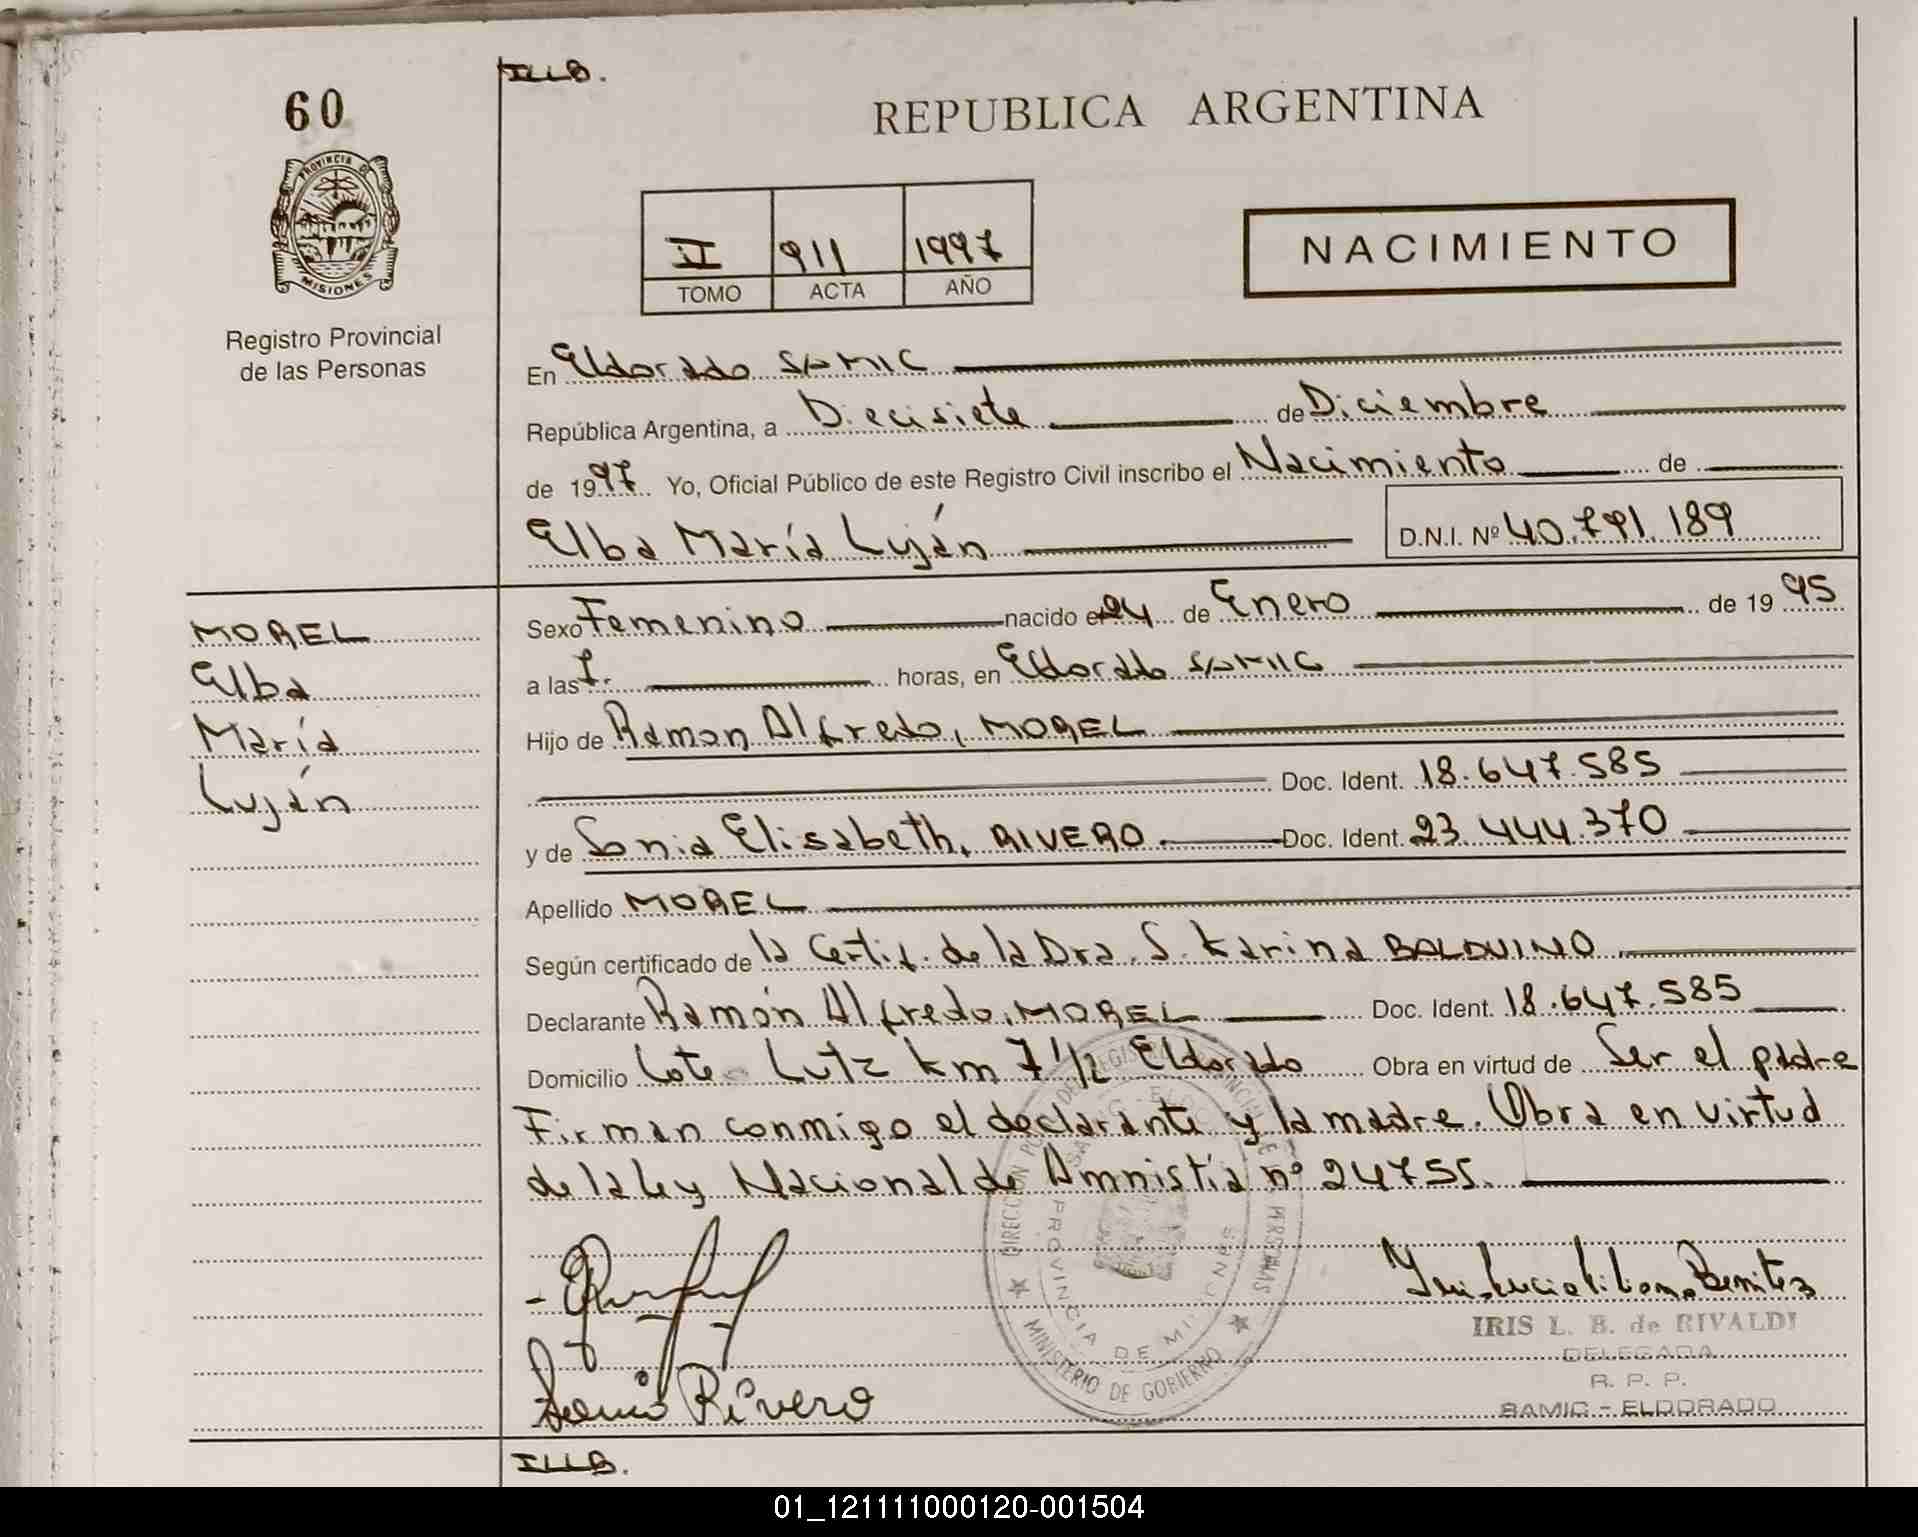 ILLB.
60
REPUBLICA ARGENTINA
PROVINCIA DE
MISIONES
Registro Provincial
de las Personas
II 911 1997
TOMO ACTA AÑO
NACIMIENTO
En Eldorado SAMIC
República Argentina, a Diecisiete de Diciembre
de 1997. Yo, Oficial Público de este Registro Civil inscribo el Nacimiento de
Elba María Luján D.N.I. Nº 40.791.189
MOREL
Elba
María
Luján
Sexo Femenino nacido el 24 de Enero de 1995
a las 7. horas, en Eldorado SAMIC
Hijo de Ramon Alfredo, MOREL
Doc. Ident. 18.647.585
y de Sonia Elisabeth, RIVERO Doc. Ident. 23.444.370
Apellido MOREL
Según certificado de la Certif. de la Dra. S. Karina BALDUINO
Declarante Ramón Alfredo, MOREL Doc. Ident. 18.647.585
Domicilio Lote Lutz Km 7 1/2 Eldorado Obra en virtud de Ser el padre
Firman conmigo el declarante y la madre. Obra en virtud
de la ley Nacional de Amnistía nº 24755.
PROVINCIA DE
MINISTERIO DE GOBIERNO
Sonia Rivero
Benitez
IRIS L. B. de RIVALDI
DELEGADA
R. P. P.
SAMIC - ELDORADO
ILLB.
01_121111000120-001504